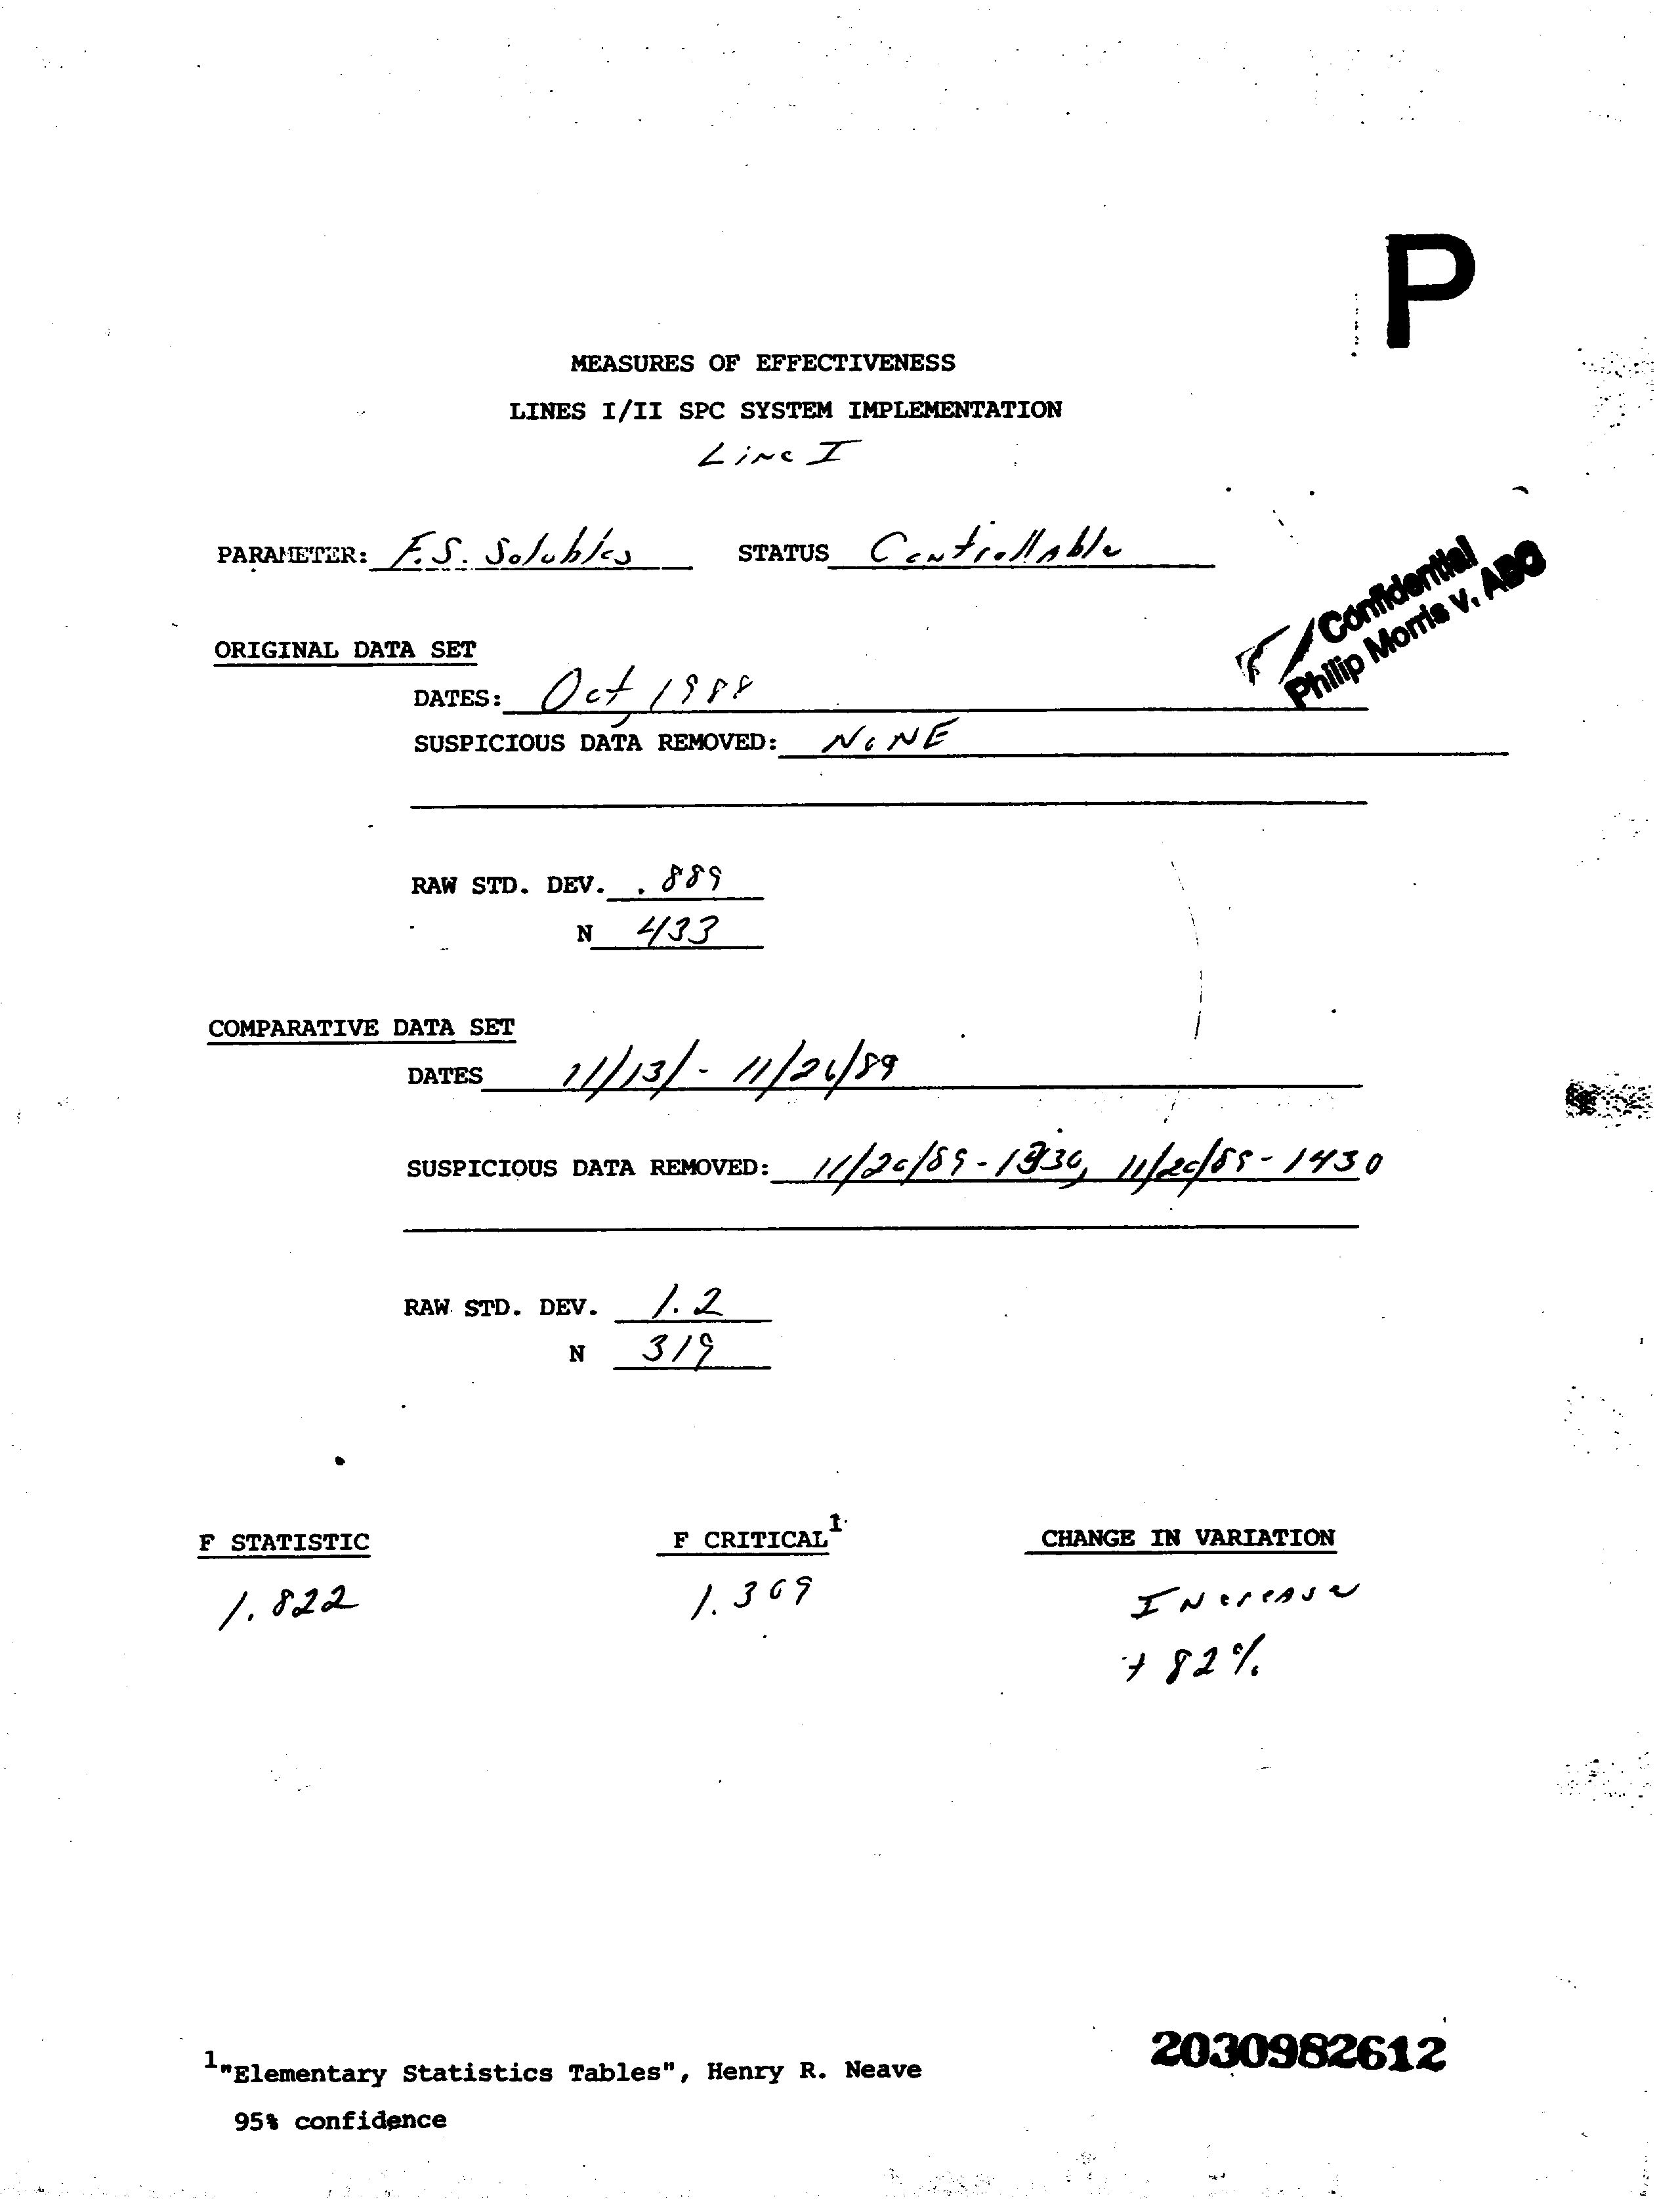 P
MEASURES OF EFFECTIVENESS
LINES I/II SPC SYSTEM IMPLEMENTATION
Line I
PARAMETER: F.S. Solubles STATUS Controllable
Confidential
Philip Morris v. ABC
ORIGINAL DATA SET
DATES: Oct, 1988
SUSPICIOUS DATA REMOVED: NONE
RAW STD. DEV. .889
N 433
COMPARATIVE DATA SET
DATES 11/13/ - 11/26/89
SUSPICIOUS DATA REMOVED: 11/20/89 - 11/20/89 - 1430
RAW STD. DEV. 1.2
N 319
F STATISTIC F CRITICAL 1. CHANGE IN VARIATION
1.822 1.369 Increase
+ 82%
1"Elementary Statistics Tables", Henry R. Neave
95% confidence
2030982612